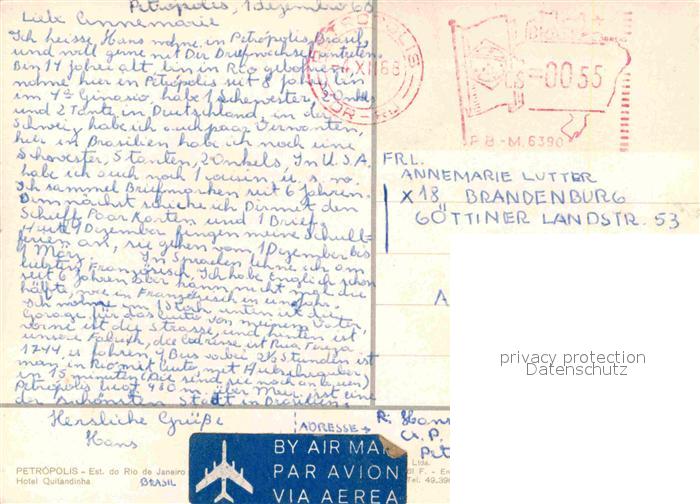 Petrópolis, 1 Dezember 68
Liebe Annemarie
Ich heisse Hans wohne in Petrópolis, Brasil,
und will gerne mit Dir Briefwechsel
Bin 17 Jahre alt bin in Rio geboren
wohne hier in Petrópolis seit 8 Jahre, bin
im 4ª Ginasio, habe 1 Schwester, Onkels
und 2 Tante in Deutschland, in der
Schweiz habe ich auch paar Verwanten,
hier in Brasilien habe ich noch eine
Schwester, 5 Tanten, 2 Onkels. In U.S.A.
habe ich auch noch 1 cousin u. s. w.
Ich sammel Briefmarken seit 6 Jahren.
Demnächst schicke ich Dir mit den
Schiff Paar Karten und 1 Brief.
Dezember fangen meine Schul-
ferien an, sie gehen vom 1 Dezember bis
1 März. In Sprachen lerne ich am
Französisch, Ich habe Englisch schon
seit 6 Jahren aber kann nicht mal die
hälfte, wie in Französisch in un Jahr.
Ich wohne im 1 Stock unten ist die
Garage für das Auto von meinem Vater,
vorne ist die Strasse, und hinten ist
unsere Fabrik, die Adresse ist Rua Tereza
1744, es fahren 4 Bus vorbei 2½ Stunden ist
man in Rio mit Auto, mit Hubschrauber
in 15 minuten (Die sind, sie noch an bauen)
Petrópolis liegt 480 m über Meer, ist eine
der schönsten Stadt in Brasilien.
Hersliche Grüße
Hans
ADRESSE →
R: Hans
PETRÓPOLIS - Est. do Rio de Janeiro
Hotel Quitandinha
BRASIL
BY AIR MAIL
PAR AVION
VIA AEREA
Ltda.
PETROPOLIS
XII 68
=0055
P.B.-M. 6390
FRL.
ANNEMARIE LUTTER
X18 BRANDENBURG
GÖTTINER LANDSTR. 53
privacy protection
Datenschutz